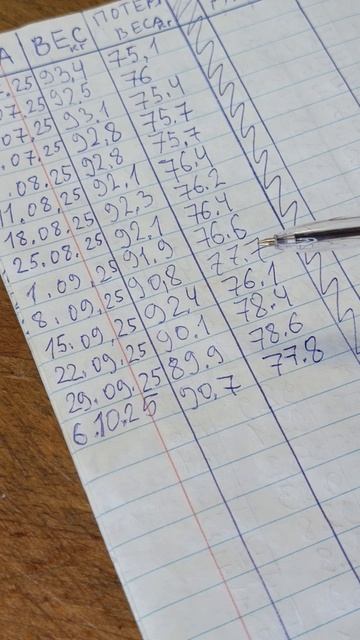 А ВЕС кг ПОТЕР ВЕСА кг
.25 93,4 75.1
07.25 92.5 76
07.25 93.1 75.4
.07.25 92,8 75.7
.08.25 92.8 75.7
11.08.25 92.1 76.4
18.08.25 92,3 76.2
25.08.25 92.1 76.4
1.09.25 91.9 76.6
8.09.25 90,8 77.7
15.09.25 92.4 76.1
22.09.25 90.1 78.4
29.09.25 89.9 78.6
6.10.25 90,7 77.8